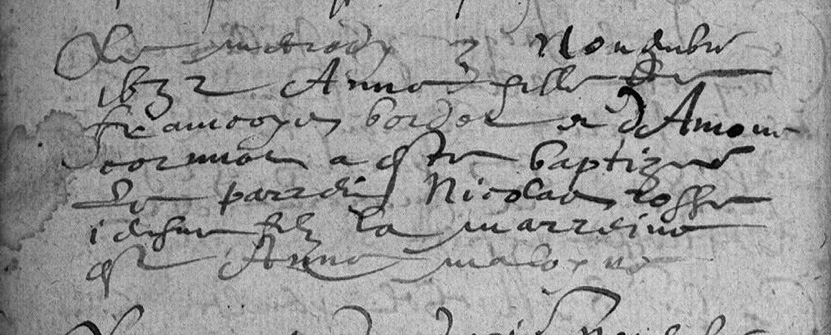 Le mercredy 3 Novembre
1632 Anne fille de
francoys borde et d'Amone
cormier a este baptizee
Le parrein Nicolas
filz La marreine
est Anne